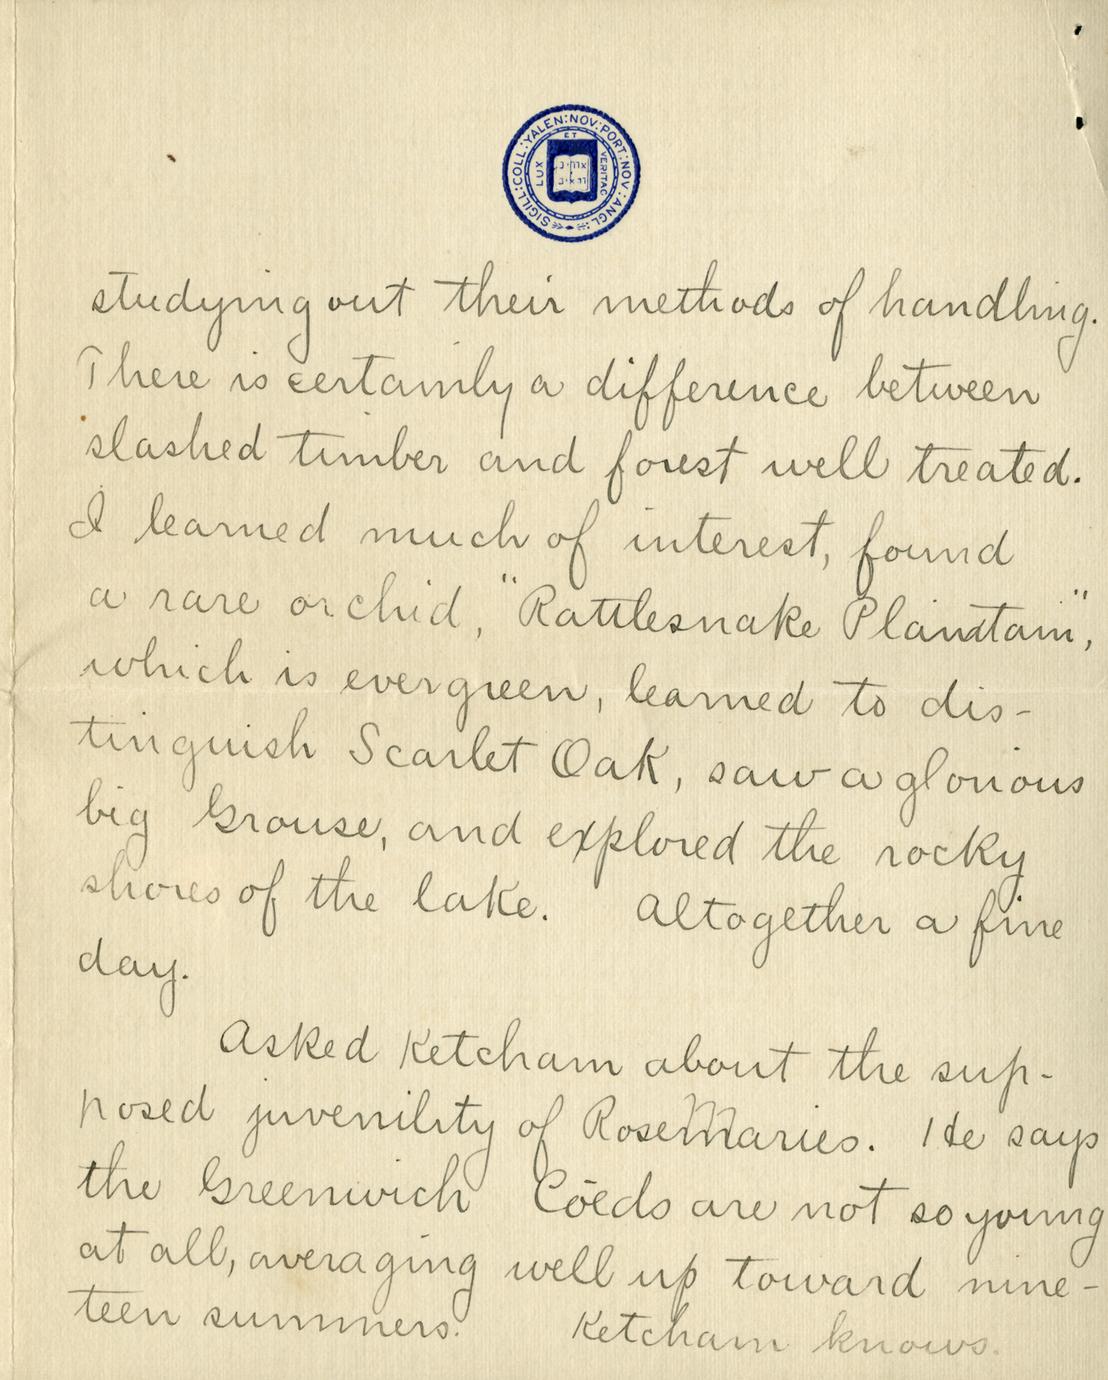 SIGILL:COLL:YALEN:NOV:PORT:NOV:ANGL:
ET
LUX
VERITAS
studying out their methods of handling.
There is certainly a difference between
slashed timber and forest well treated.
I learned much of interest, found
a rare orchid, "Rattlesnake Plaintain",
which is evergreen, learned to dis-
tinguish Scarlet Oak, saw a glorious
big Grouse, and explored the rocky
shores of the lake. Altogether a fine
day.
Asked Ketcham about the sup-
posed juvenility of RoseMaries. He says
the Greenwich Cōeds are not so young
at all, averaging well up toward nine-
teen summers. Ketcham knows.